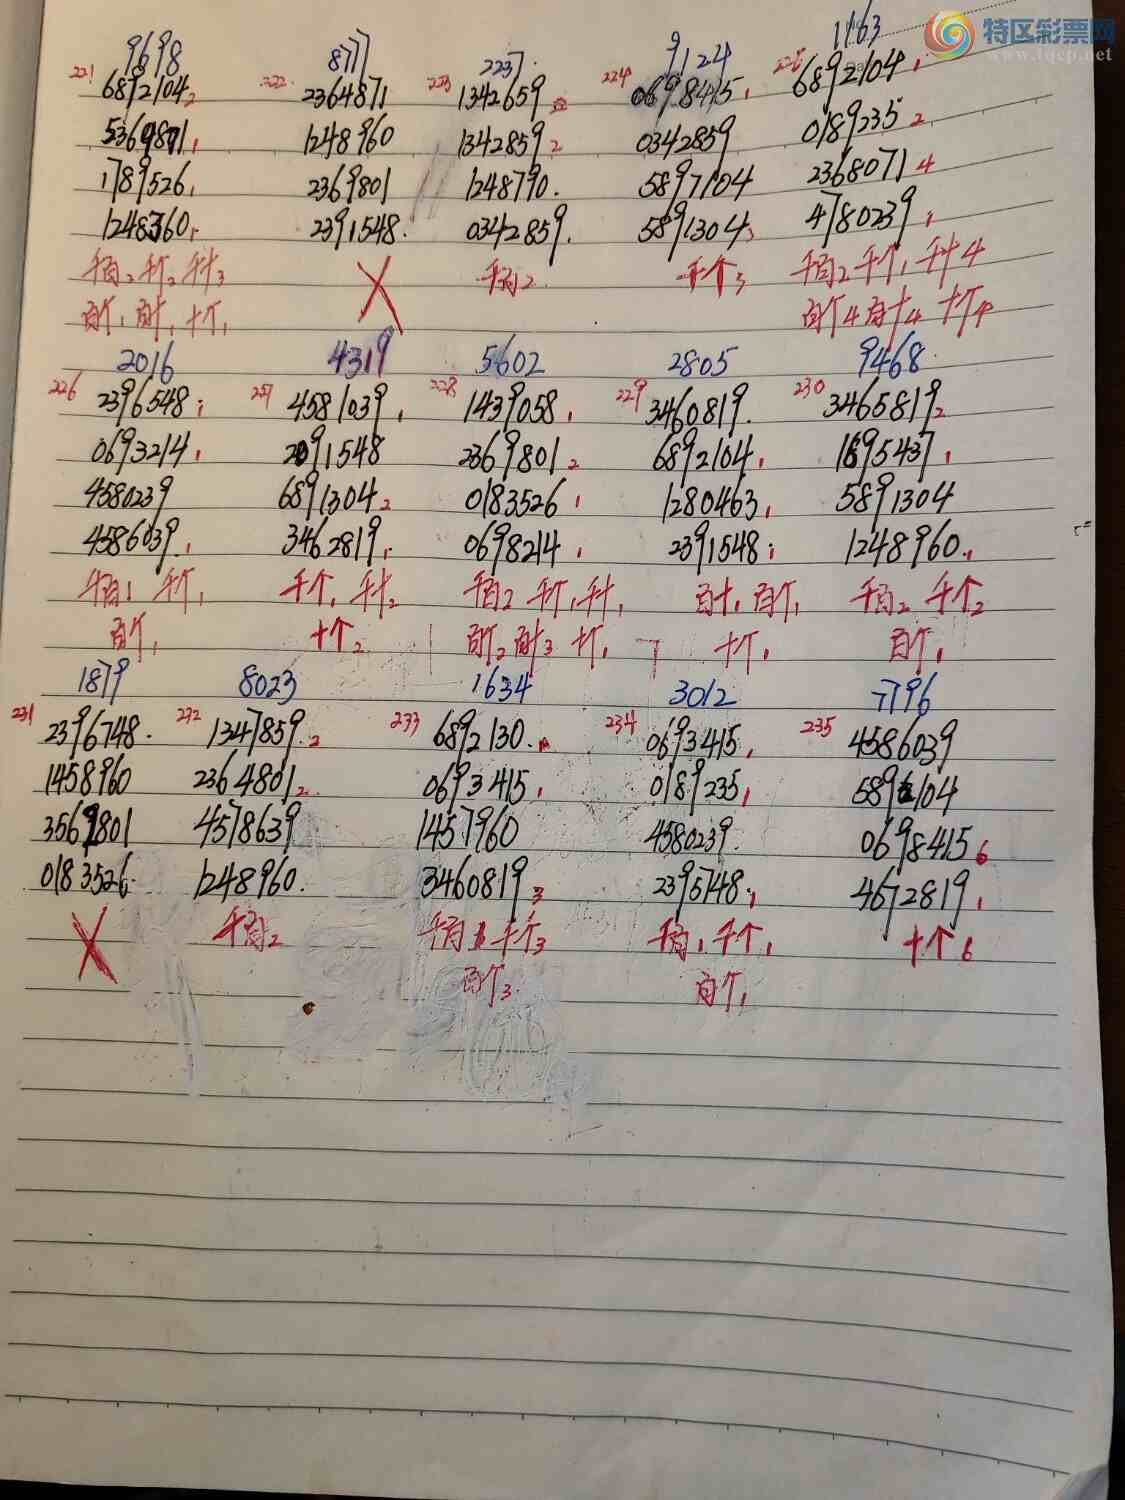 特区彩票网
www.tqcp.net
9698 8777 2237. 9124 1163
221 6892104 2 222 2364871 223 1342659 224 0698415 1 225 6892104 1
5369801 1 1248960 1342859 2 0342859 0189235 2
1789526 1 2369801 1248790. 5897104 2368071 4
1248360 1 2391548. 0342859. 5891304 3 4780239 1
千百2 千个2 千十3 X 千百2 千个3 千百2 千个1 千十4
百个1 百十1 十个1 百个4 百十4 十个4
2016 4319 5602 2805 9468
226 2396548 1 227 4581039 1 228 1439058 1 229 3460819. 230 3465819 2
0693214 1 2091548 2369801 2 6892104 1 1895437 1
4580239 6891304 2 0183526 1 1280463 1 5891304
4586039 1 3462819 1 0698214 1 2391548 1 1248960 1
千百1 千个1 千个1 千十2 千百2 千个1 千十1 百十1 百个1 千百2 千个2
百个1 十个2 百个2 百十3 十个1 十个1 百个1
1879 8023 1634 3012 7796
231 2396748. 232 1347859. 2 233 6892130. 234 0693415 1 235 4586039
1458960 2364801 2 0693415 1 0189235 1 589104
3569801 4578639 1457960 4580239. 0698415 6
0183526. 1248960. 3460819 3 2395748 1 4672819 1
X 千百2 千百1 千个3 千百1 千个1 十个6
百个3 百个1